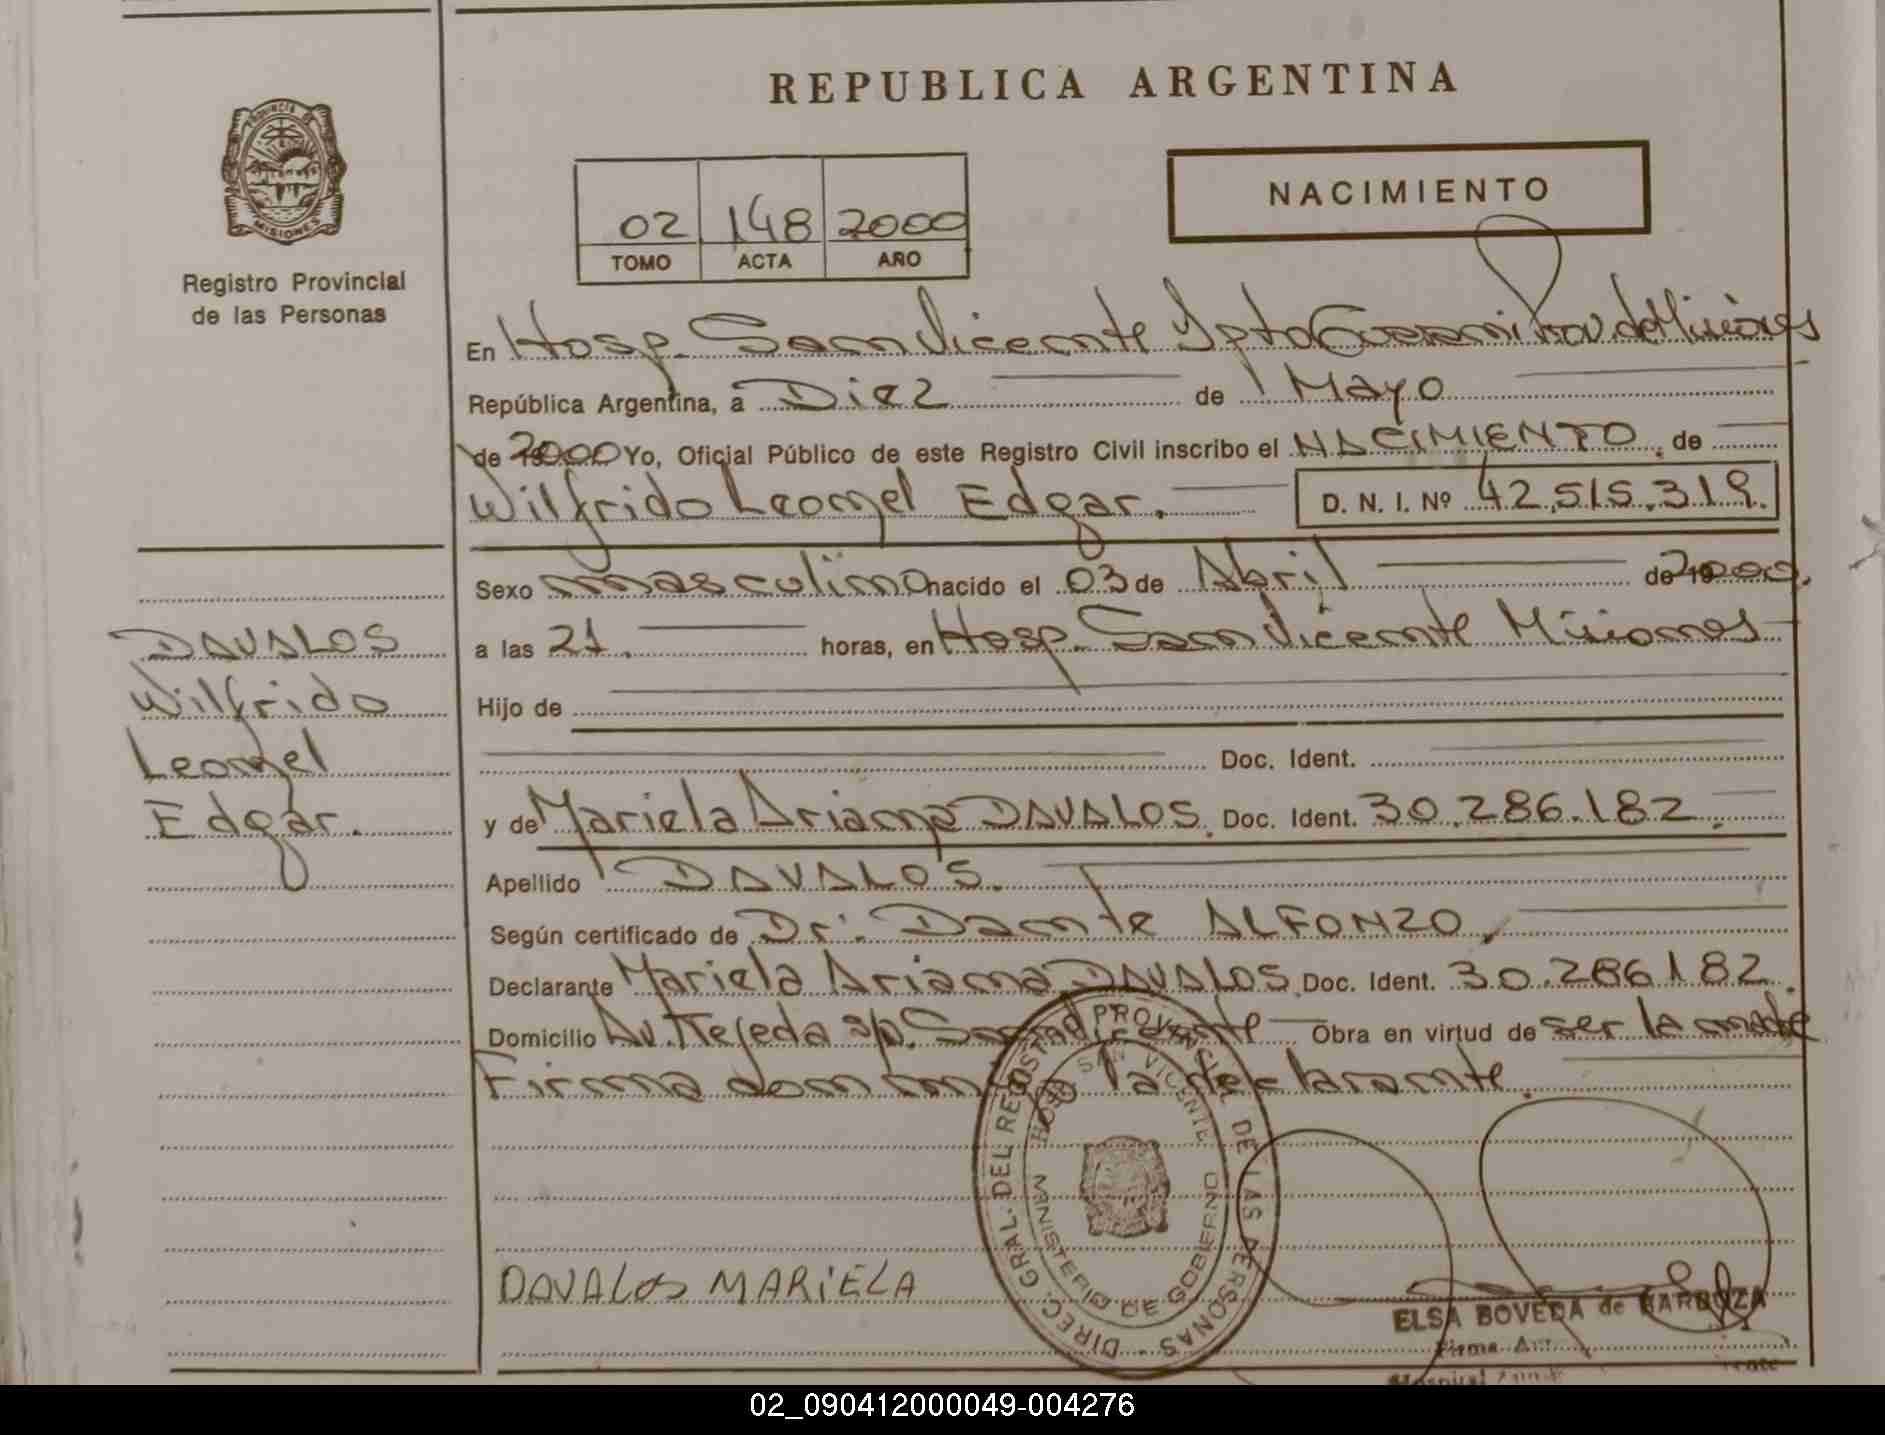 REPUBLICA ARGENTINA
PROVINCIA DE
MISIONES
Registro Provincial
de las Personas
NACIMIENTO
02 148 2000
TOMO ACTA AÑO
En Hosp. San Vicente Dpto Guarani Prov. de Misiones
República Argentina, a Diez de Mayo
de 2000 Yo, Oficial Público de este Registro Civil inscribo el NACIMIENTO, de
Wilfrido Leonel Edgar. D. N. I. Nº 42.515.319.
Sexo masculino nacido el 03 de Abril de 2000.
a las 21. horas, en Hosp. San Vicente Misiones
Hijo de
Doc. Ident.
y de Mariela Ariana DAVALOS. Doc. Ident. 30.286.182.
Apellido DAVALOS.
Según certificado de Dr. Dante ALFONZO.
Declarante Mariela Ariana DAVALOS. Doc. Ident. 30.286.182.
Domicilio Av. Tejeda s/n. San Vicente Obra en virtud de ser la madre
Firma con la declarante.
DAVALOS
Wilfrido
Leonel
Edgar.
DIREC. GRAL. DEL REGISTRO PROVINCIAL DE LAS PERSONAS
HOSP. SAN VICENTE
MINISTERIO DE GOBIERNO
DAVALOS MARIELA
ELSA BOVEDA de BARBOZA
Firma
Hospital
02_090412000049-004276